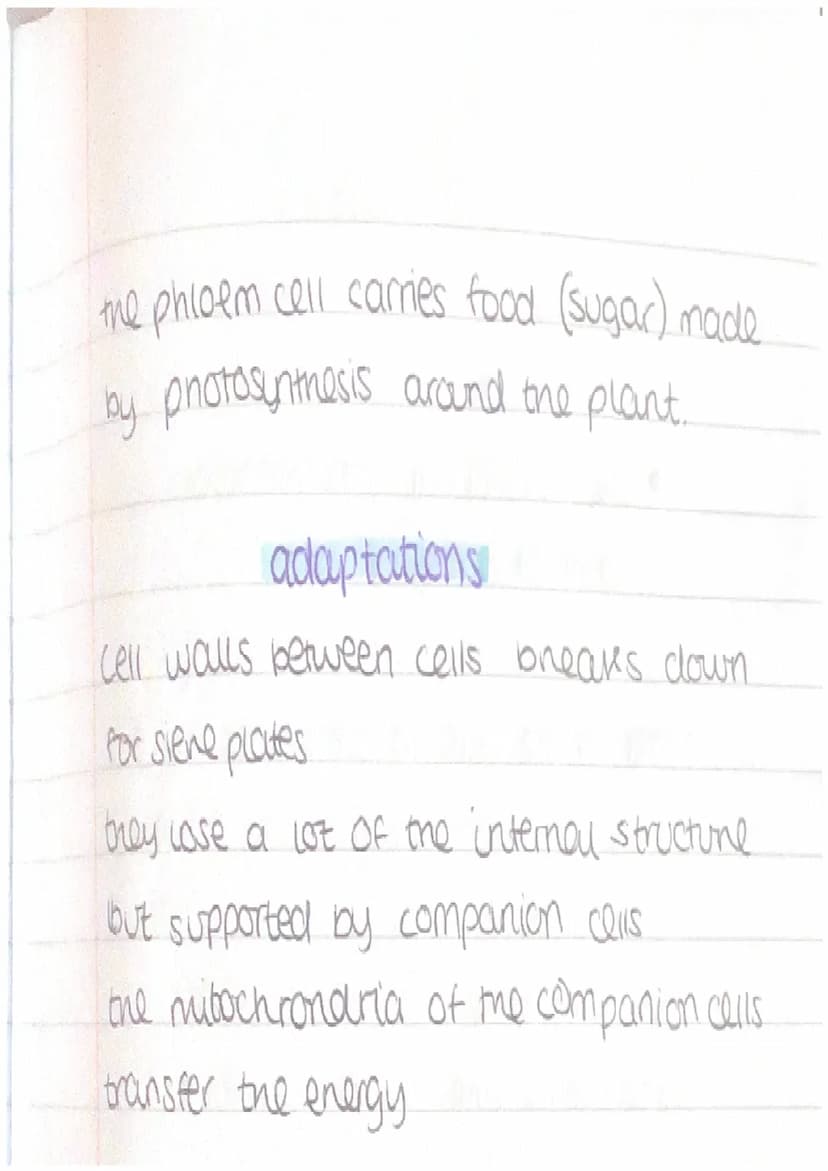 the phloem cell carries food (sugar) made
by photosynthesis around the plant.
adaptations
cell walls between cells breaks down
for sieve plates
they lose a lot of the internal structure
but supported by companion cells
the mitochrondria of the companion cells
transfer the energy